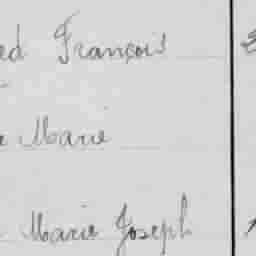 ed François
Marie
Marie Joseph